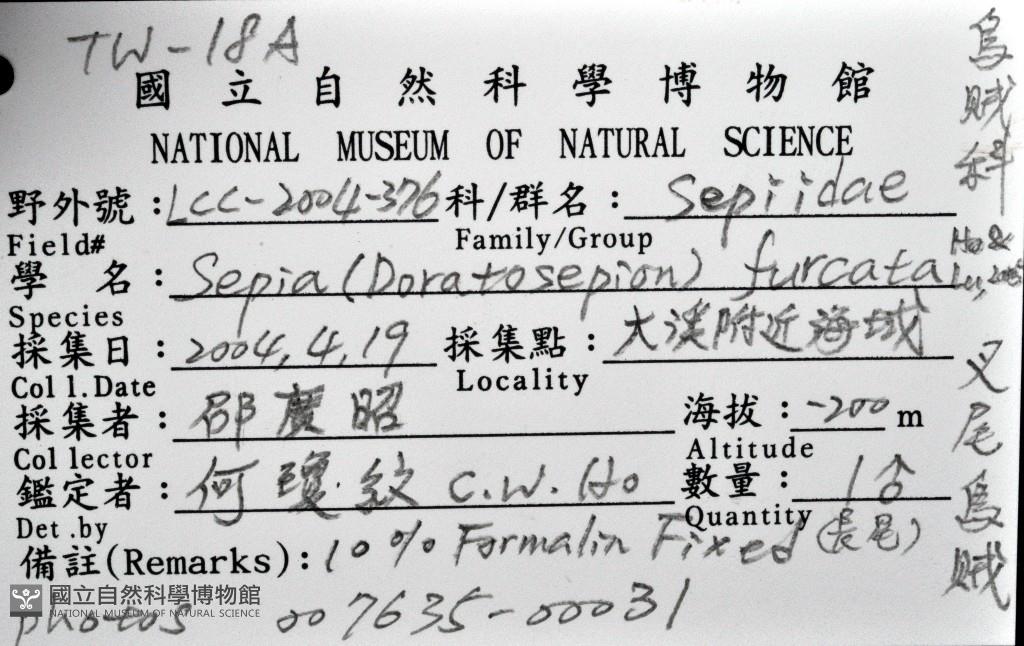 TW-18A
國立自然科學博物館
NATIONAL MUSEUM OF NATURAL SCIENCE
野外號：LCC-2004-376 科/群名：Sepiidae
Field# Family/Group
學 名：Sepia (Doratosepion) furcata Ho & Lu, 2005
Species
採集日：2004.4.19 採集點：大溪附近海域
Coll.Date Locality
採集者：邵廣昭 海拔：-200 m
Collector Altitude
鑑定者：何瓊紋 C.W. Ho 數量：1♂
Det.by Quantity (長尾)
備註(Remarks)：10% Formalin Fixed
國立自然科學博物館
NATIONAL MUSEUM OF NATURAL SCIENCE
photos 007635-00031
烏賊科
叉尾烏賊